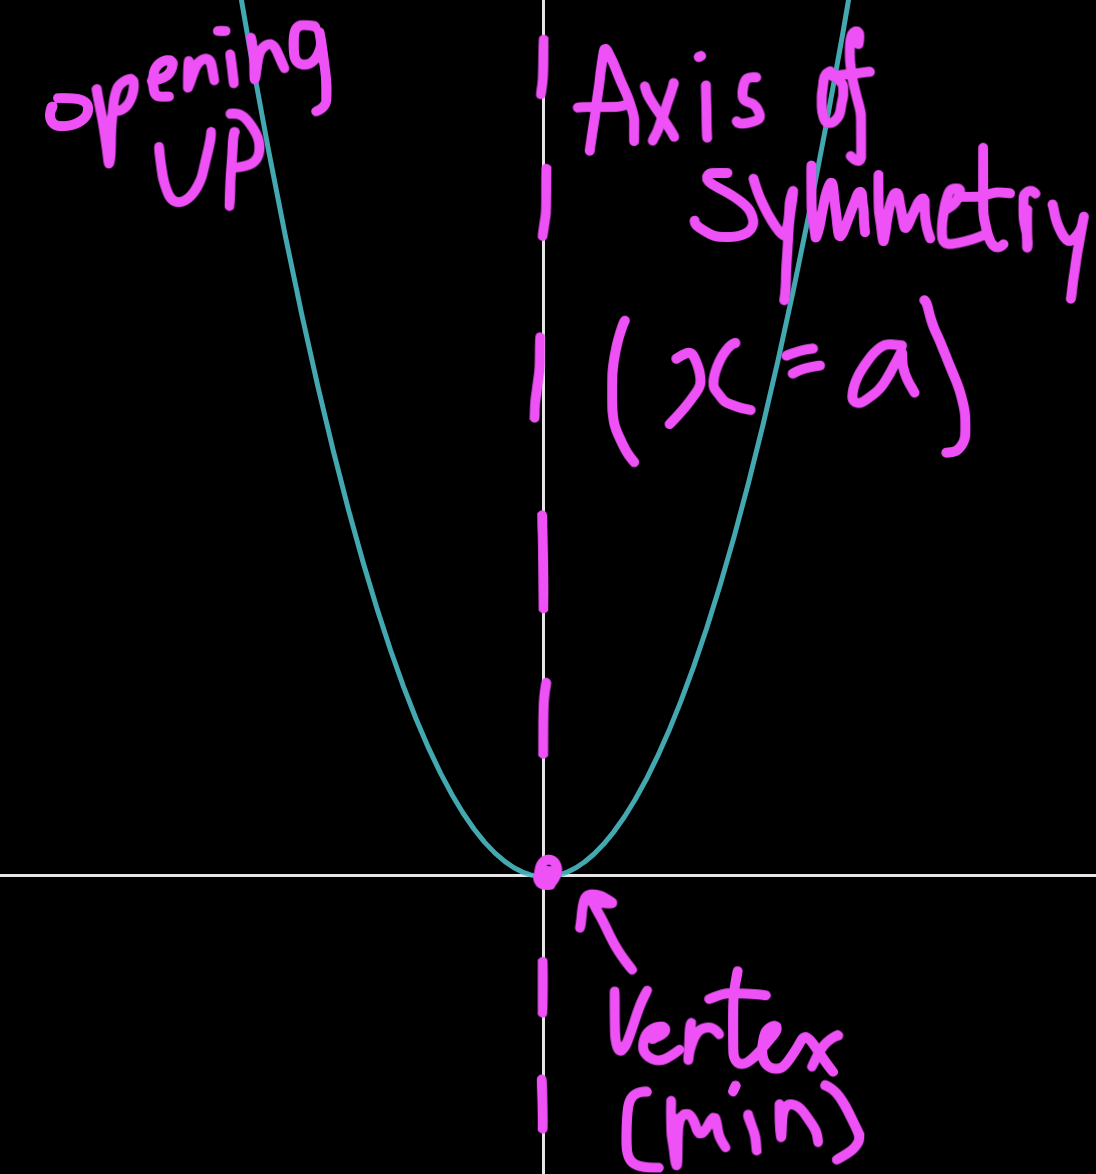 opening
UP
Axis of
symmetry
(x = a)
Vertex
(min)